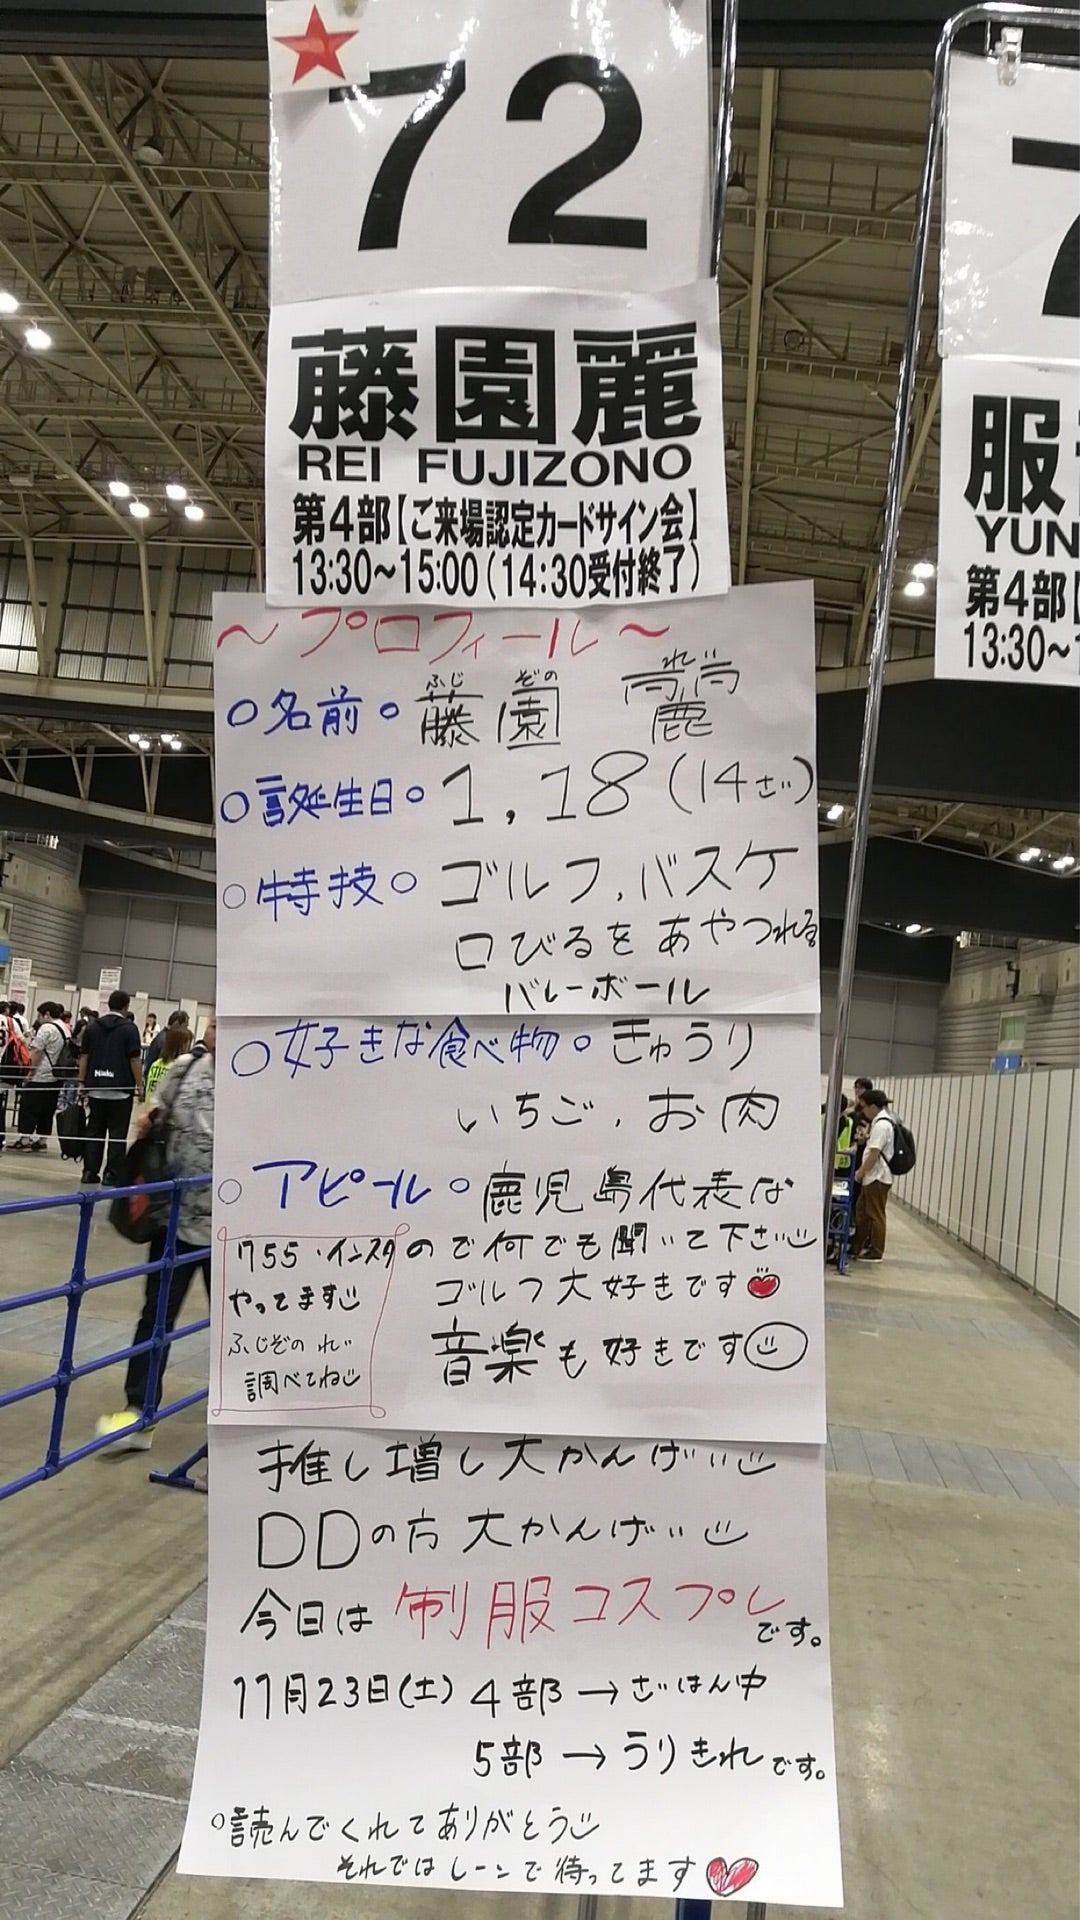 72
藤園麗
REI FUJIZONO
第4部【ご来場認定カードサイン会】
13:30〜15:00(14:30受付終了)
〜プロフィール〜
○名前○ 藤園 麗
ふじ ぞの れい
○誕生日○ 1.18(14さい)
○特技○ ゴルフ、バスケ
口びるをあやつれる
バレーボール
○好きな食べ物○ きゅうり
いちご、お肉
○アピール○ 鹿児島代表な
ので何でも聞いて下さい
ゴルフ大好きです
音楽も好きです
755・インスタ
やってます
ふじぞの れい
調べてね
推し増し大かんげい
DDの方大かんげい
今日は制服コスプレ
です。
11月23日(土)4部→ざはん中
5部→うりきれです。
○読んでくれてありがとう
それではレーンで待ってます
7
服
YUN
第4部【
13:30〜1